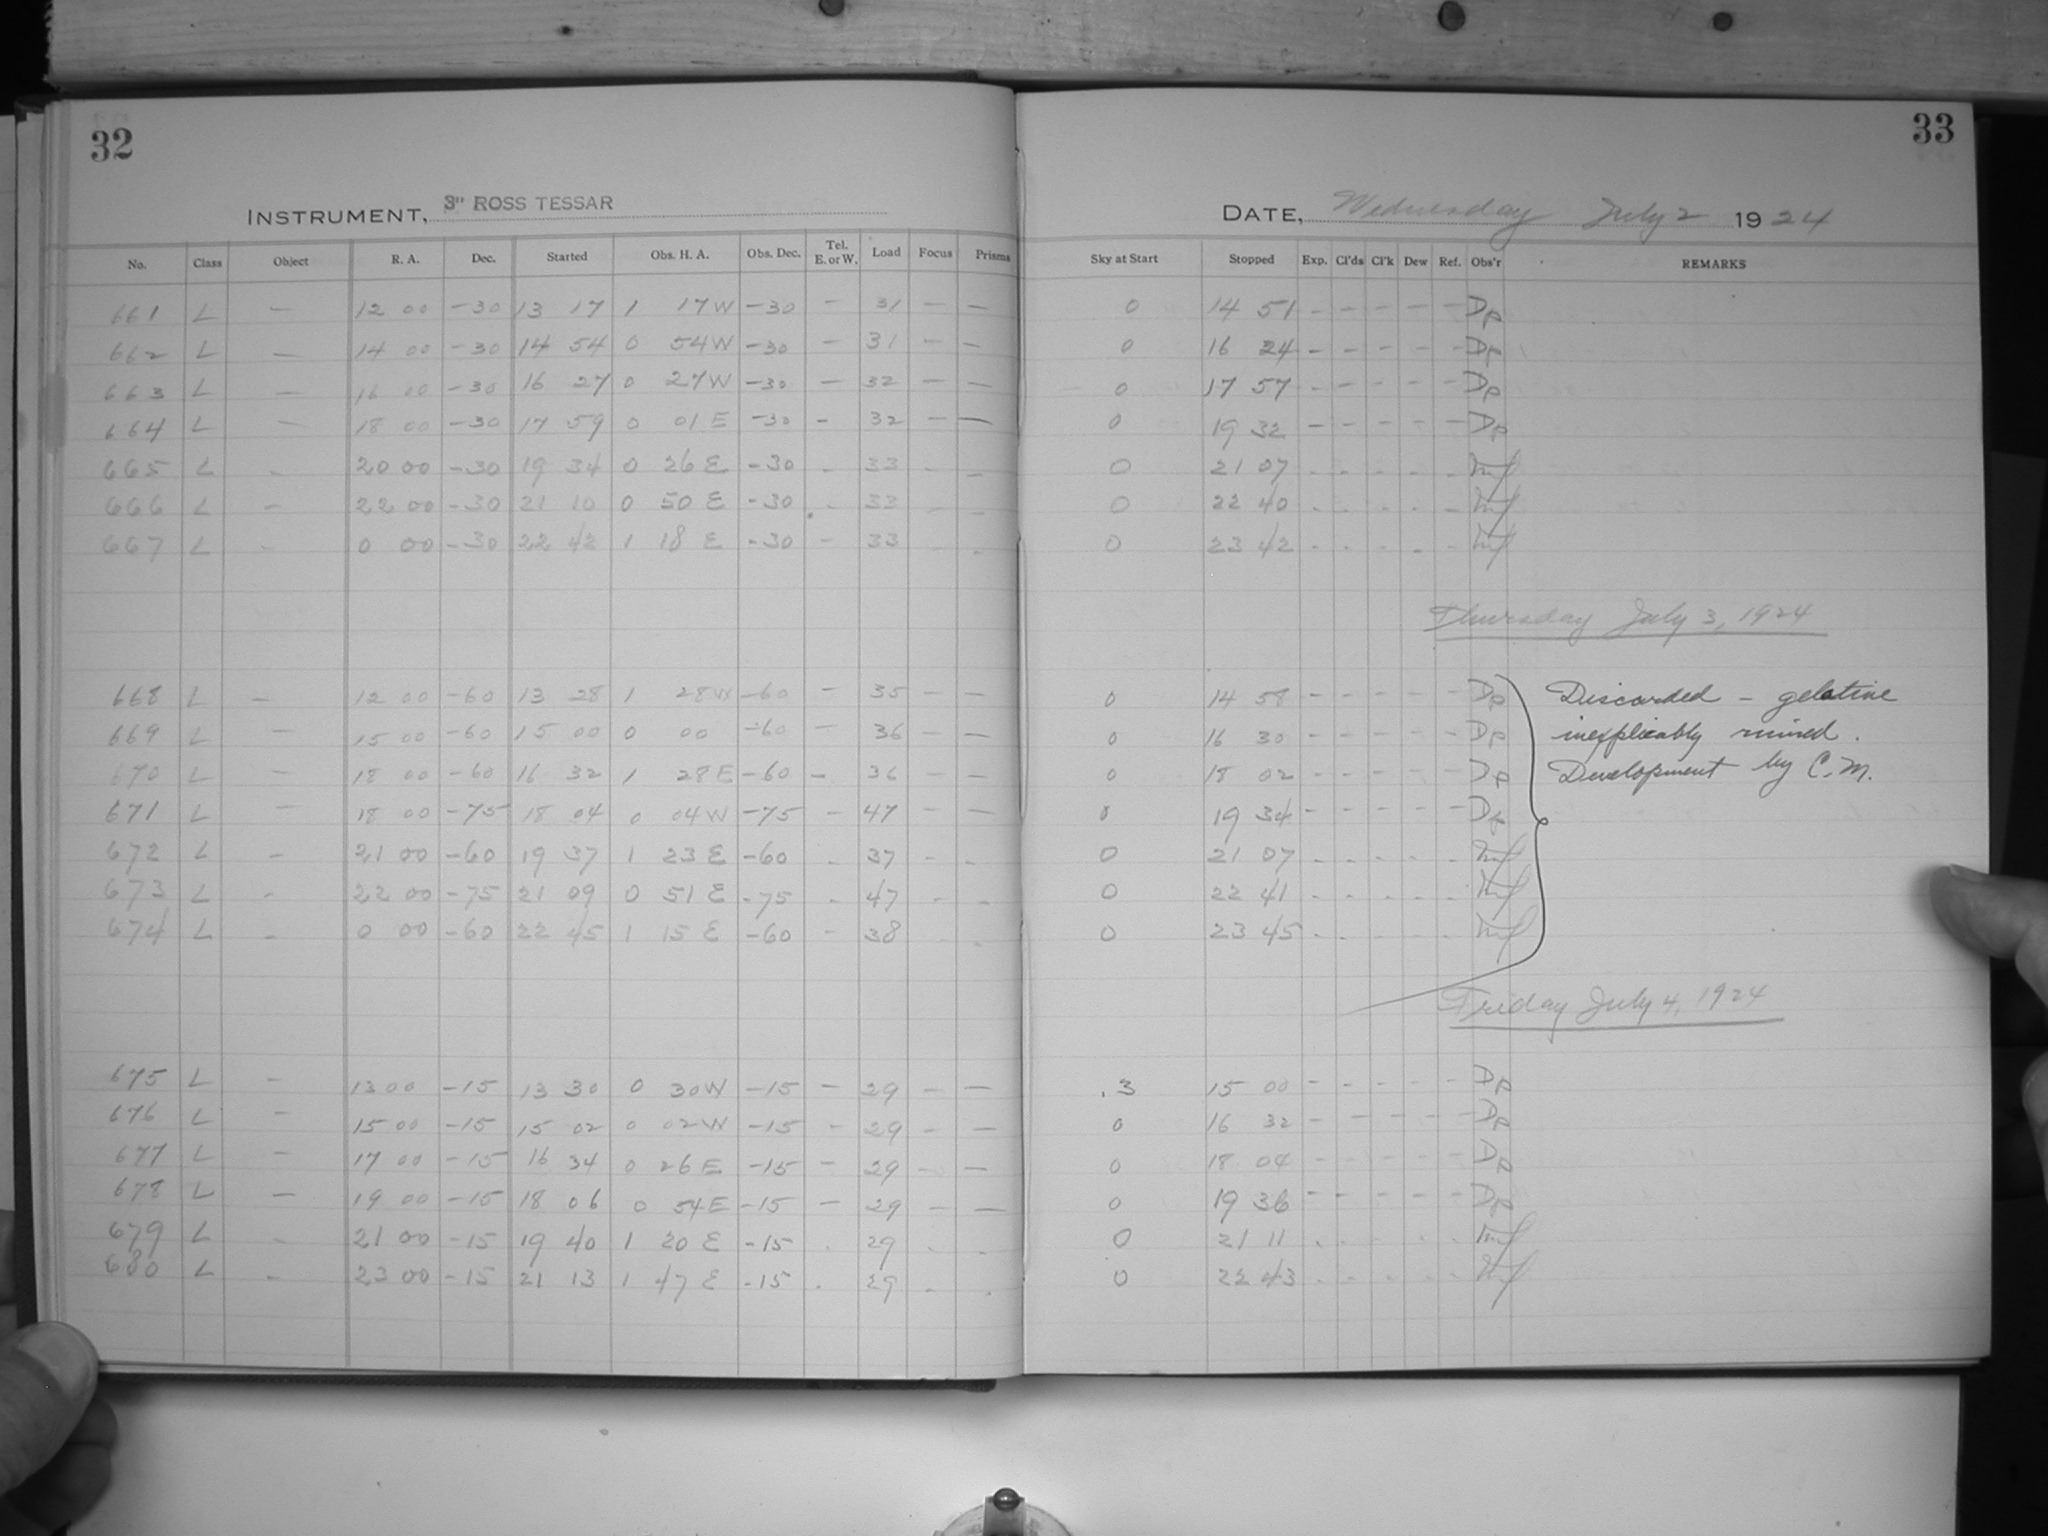 32
33
INSTRUMENT, 3" ROSS TESSAR
DATE, Wednesday July 2 1924
No. Class Object R. A. Dec. Started Obs. H. A. Obs. Dec. Tel. E. or W. Load Focus Prisms Sky at Start Stopped Exp. Cl'ds Cl'k Dew Ref. Obs'r REMARKS
661 L — 12 00 -30 13 17 1 17W -30 — 31 — — 0 14 51 - - - - - DP
662 L — 14 00 -30 14 54 0 54W -30 — 31 — — 0 16 24 - - - - - DP
663 L — 16 00 -30 16 27 0 27W -30 — 32 — — 0 17 57 - - - - - DP
664 L — 18 00 -30 17 59 0 01E -30 - 32 — — 0 19 32 - - - - - DP
665 L - 20 00 -30 19 34 0 26E -30 - 33 - - 0 21 07 - - - - -
666 L - 22 00 -30 21 10 0 50E -30 - 33 - - 0 22 40 - - - - -
667 L - 0 00 -30 22 42 1 18E -30 - 33 - - 0 23 42 - - - - -
Thursday July 3, 1924
668 L — 12 00 -60 13 28 1 28W -60 — 35 — — 0 14 58 - - - - - DP Discarded - gelatine
669 L — 15 00 -60 15 00 0 00 -60 — 36 — — 0 16 30 - - - - - DP inexplicably ruined.
670 L — 18 00 -60 16 32 1 28E -60 — 36 — — 0 18 02 - - - - - DP Development by C.M.
671 L — 18 00 -75 18 04 0 04W -75 — 47 — — 0 19 34 - - - - - DP
672 L - 21 00 -60 19 37 1 23E -60 - 37 - - 0 21 07 - - - - -
673 L - 22 00 -75 21 09 0 51E -75 - 47 - - 0 22 41 - - - - -
674 L - 0 00 -60 22 45 1 15E -60 - 38 - - 0 23 45 - - - - -
Friday July 4, 1924
675 L — 13 00 -15 13 30 0 30W -15 — 29 — — .3 15 00 - - - - - DP
676 L — 15 00 -15 15 02 0 02W -15 — 29 — — 0 16 32 - - - - - DP
677 L — 17 00 -15 16 34 0 26E -15 — 29 — — 0 18 04 - - - - - DP
678 L — 19 00 -15 18 06 0 54E -15 — 29 — — 0 19 36 - - - - - DP
679 L - 21 00 -15 19 40 1 20E -15 - 29 - - 0 21 11 - - - - -
680 L - 23 00 -15 21 13 1 47E -15 - 29 - - 0 22 43 - - - - -